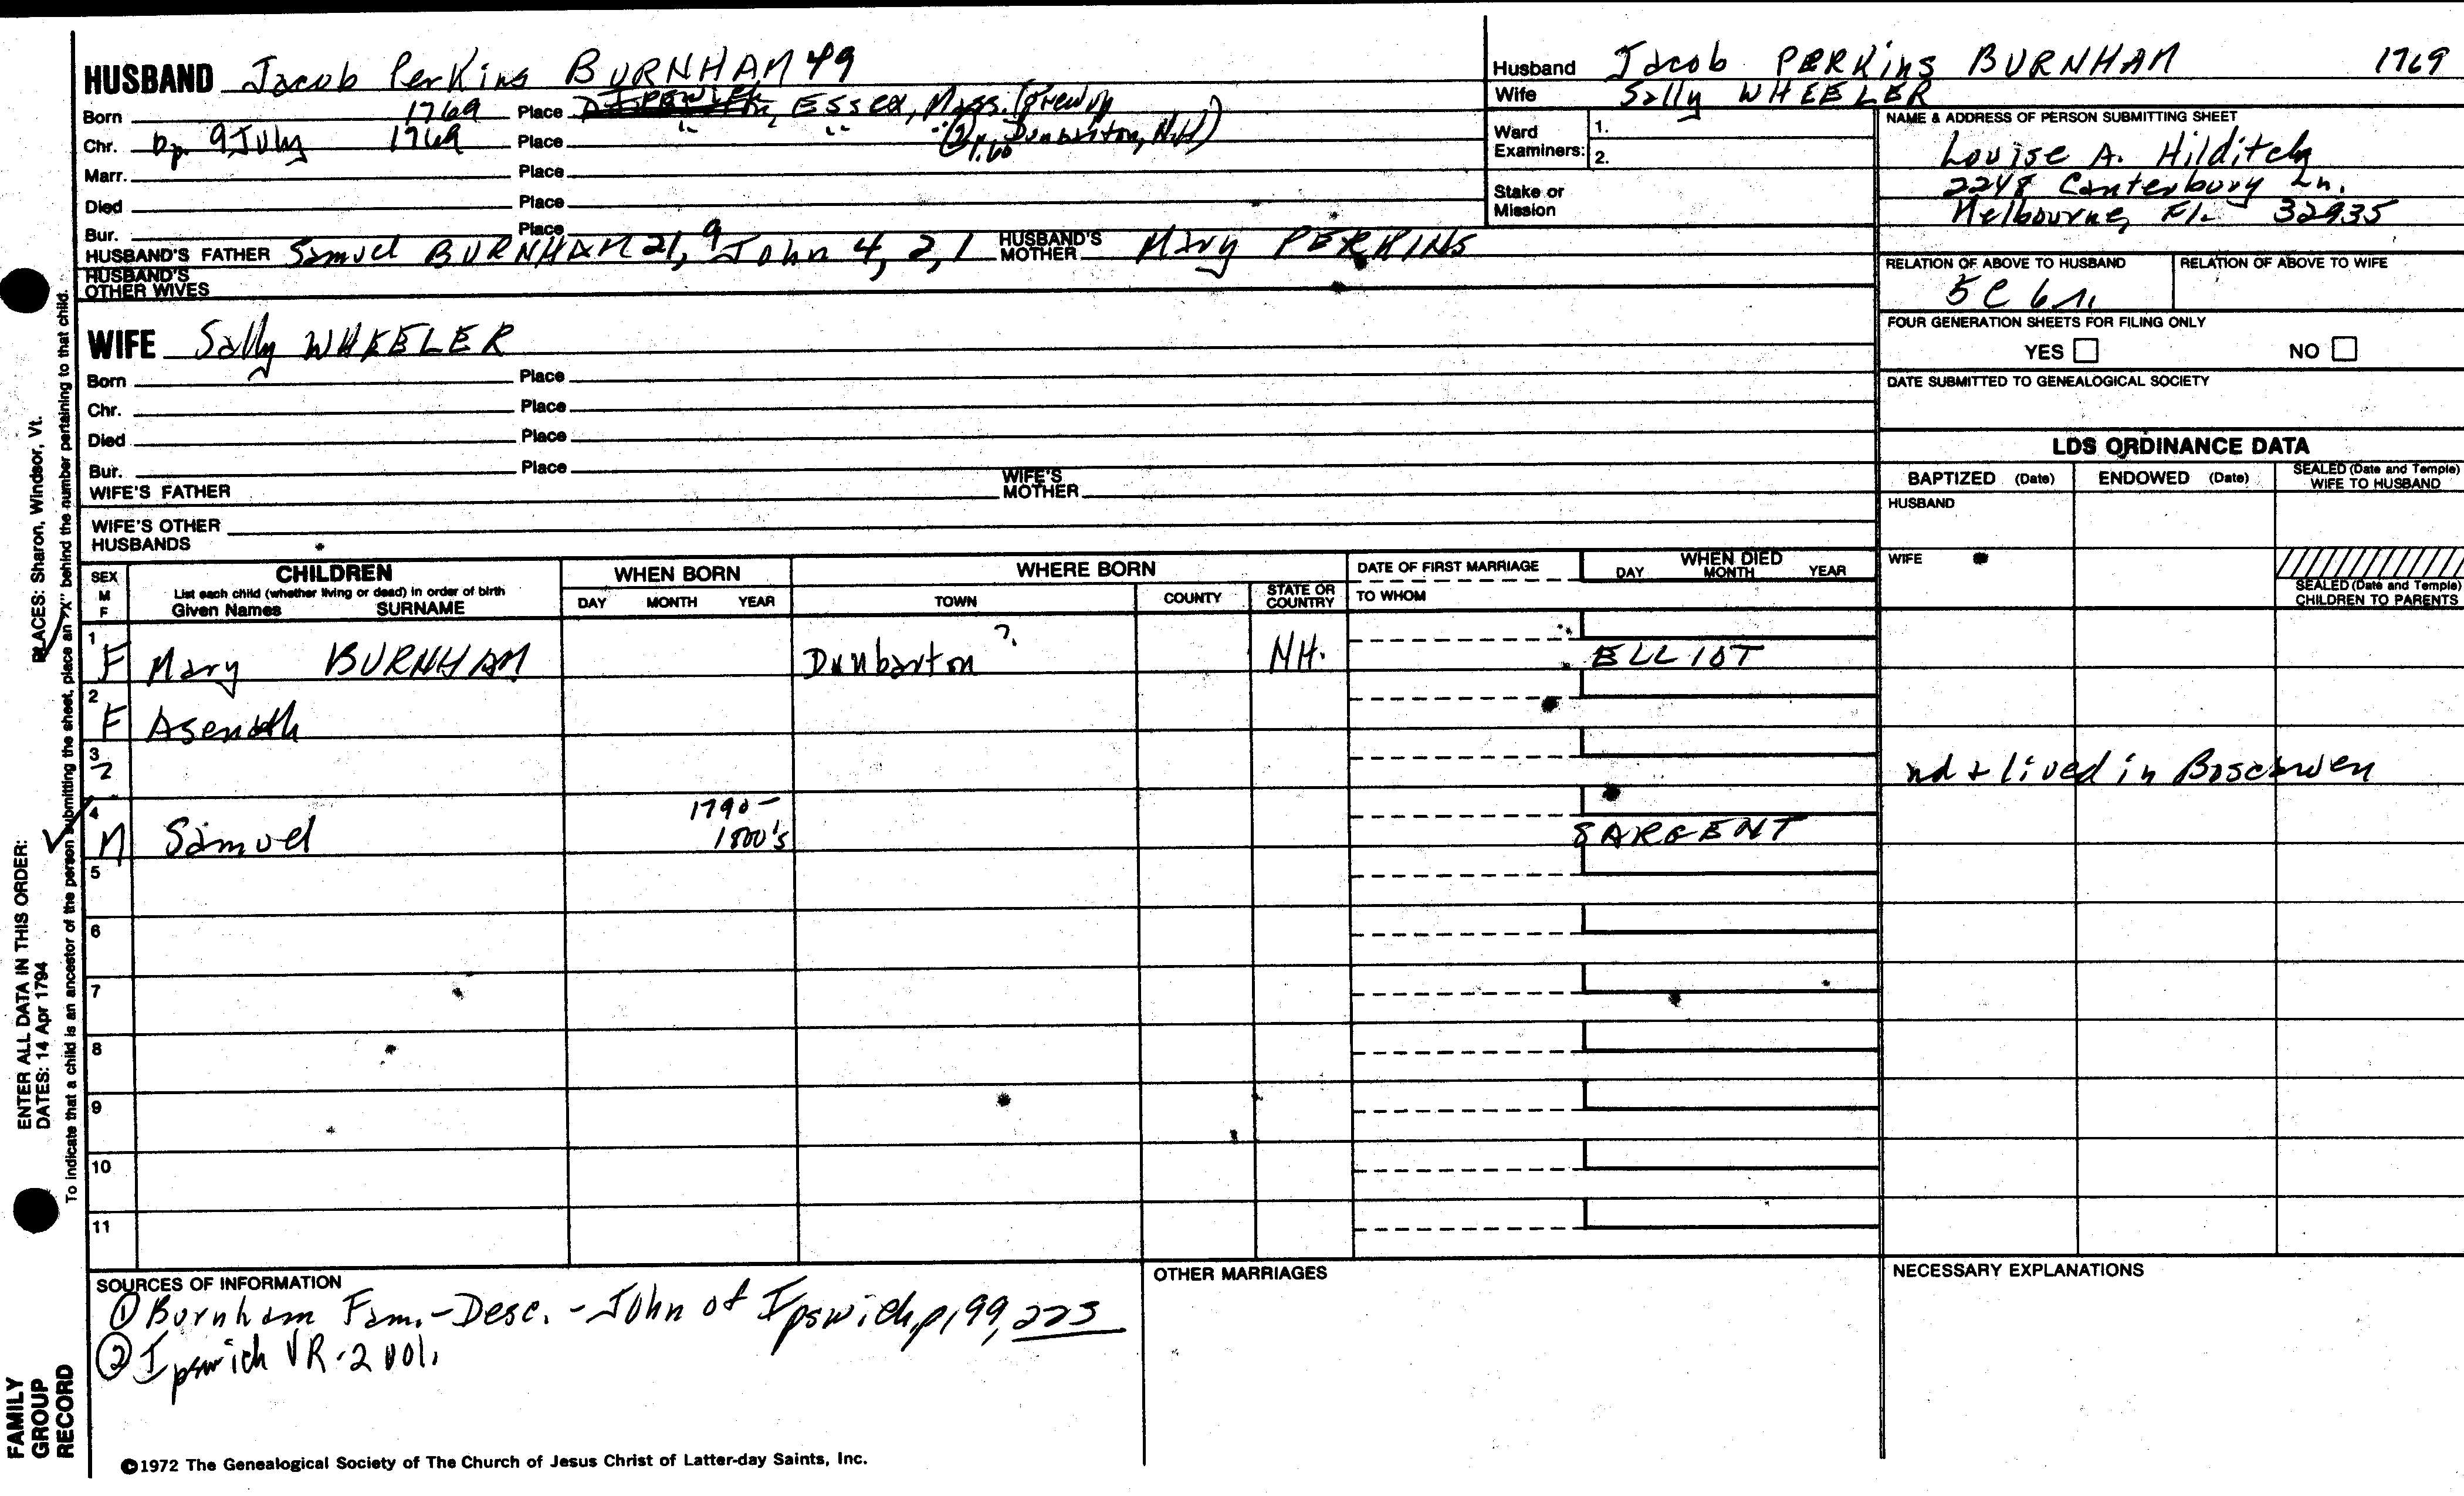 HUSBAND Jacob Perkins BURNHAM 49
Born 1769 Place Essex, Mass. (Grew up
Chr. bp. 9 July 1769 Place " " " in Dunbarton, N.H.)
Marr. Place
Died Place
Bur. Place
HUSBAND'S FATHER Samuel BURNHAM 21, 9 John 4, 2, 1 HUSBAND'S MOTHER Mary PERKINS
HUSBAND'S OTHER WIVES
WIFE Sally WHEELER
Born Place
Chr. Place
Died Place
Bur. Place
WIFE'S FATHER WIFE'S MOTHER
WIFE'S OTHER HUSBANDS
Husband Jacob PERKins BURNHAM 1769
Wife Sally WHEELER
Ward Examiners: 1. 2.
Stake or Mission
NAME & ADDRESS OF PERSON SUBMITTING SHEET
Louise A. Hilditch
2248 Canterbury Ln.
Melbourne, Fl. 32935
RELATION OF ABOVE TO HUSBAND RELATION OF ABOVE TO WIFE
5C 6r.
FOUR GENERATION SHEETS FOR FILING ONLY
YES NO
DATE SUBMITTED TO GENEALOGICAL SOCIETY
LDS ORDINANCE DATA
BAPTIZED (Date) ENDOWED (Date) SEALED (Date and Temple) WIFE TO HUSBAND
HUSBAND
WIFE
SEALED (Date and Temple) CHILDREN TO PARENTS
SEX M F
CHILDREN
List each child (whether living or dead) in order of birth
Given Names SURNAME
WHEN BORN
DAY MONTH YEAR
WHERE BORN
TOWN COUNTY STATE OR COUNTRY
DATE OF FIRST MARRIAGE
TO WHOM
WHEN DIED
DAY MONTH YEAR
1 F Mary BURNHAM Dunbarton ? NH. ELLIOT
2 F Asenath
3 2 nd & lived in Boscawen
4 M Samuel 1790- 1800's SARGENT
5
6
7
8
9
10
11
SOURCES OF INFORMATION
① Burnham Fam.-Desc. - John of Ipswich, p199, 223
② Ipswich VR-2 vol.
OTHER MARRIAGES
NECESSARY EXPLANATIONS
©1972 The Genealogical Society of The Church of Jesus Christ of Latter-day Saints, Inc.
FAMILY GROUP RECORD
ENTER ALL DATA IN THIS ORDER:
DATES: 14 Apr 1794
PLACES: Sharon, Windsor, Vt.
To indicate that a child is an ancestor of the person submitting the sheet, place an "X" behind the number pertaining to that child.